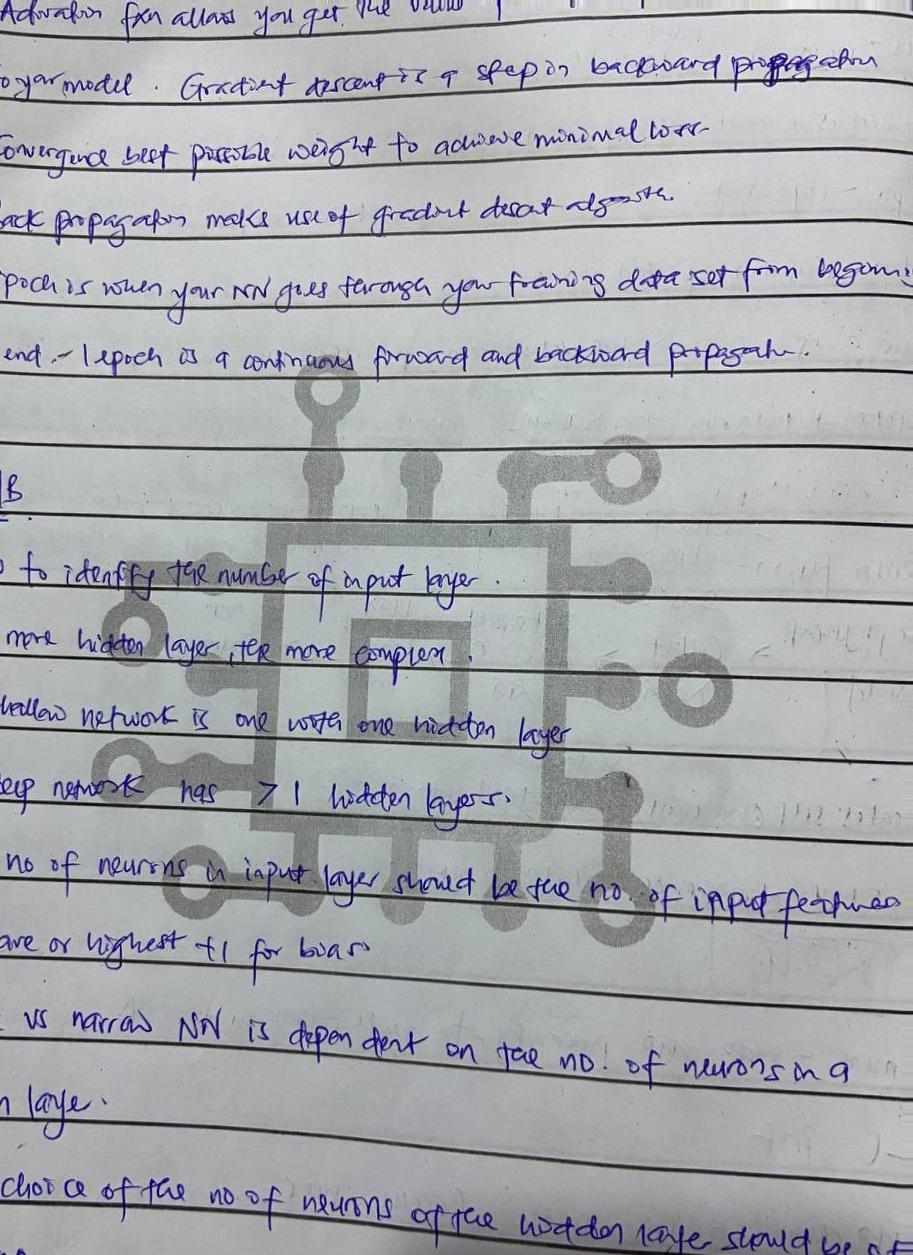 Activation fxn allows you get the
o your model. Gradient descent is a step in backward propagation
onvergence best possible weight to achieve minimal loss
ack propagation makes use of gradient descent algorithm.
poch is when your NN goes through your training data set from
end - 1 epoch is a continuous forward and backward propagatn.
B
to identify the number of input layer.
more hidden layer, the more complex.
hallow network is one with one hidden layer
eep network has > 1 hidden layers.
no of neurons in input layer should be the no. of input features
are or highest +1 for bias
vs narrow NN is dependent on the no. of neurons in a
n laye.
choice of the no of neurons of the hidden layer should be